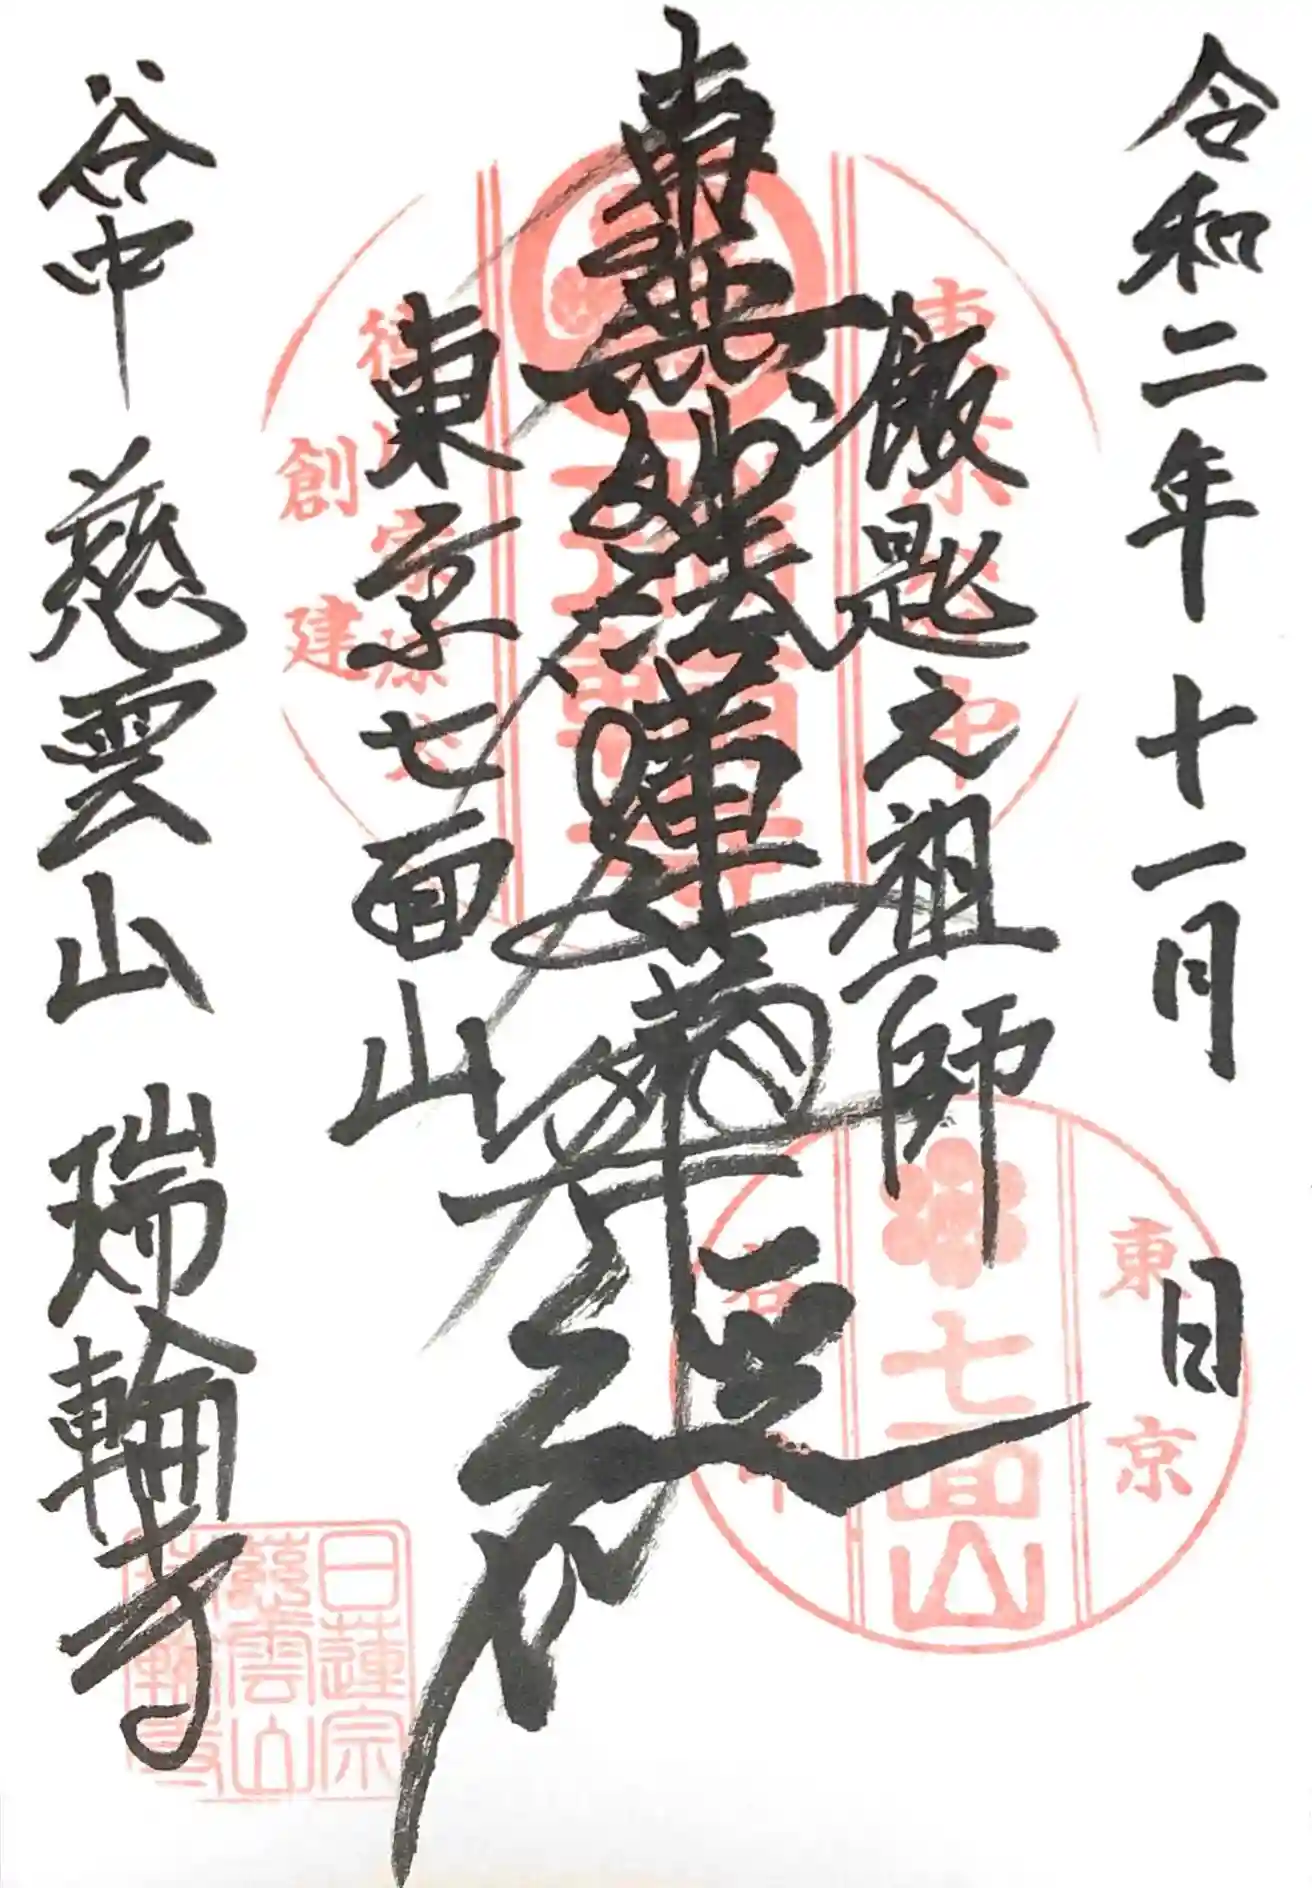 令和二年 十一月 日
飯匙之祖師
南無妙法蓮華経
東京七面山
谷中 慈雲山 瑞輪寺
東京谷中
瑞輪寺
創建
東京
七面山
日蓮宗
慈雲山
瑞輪寺